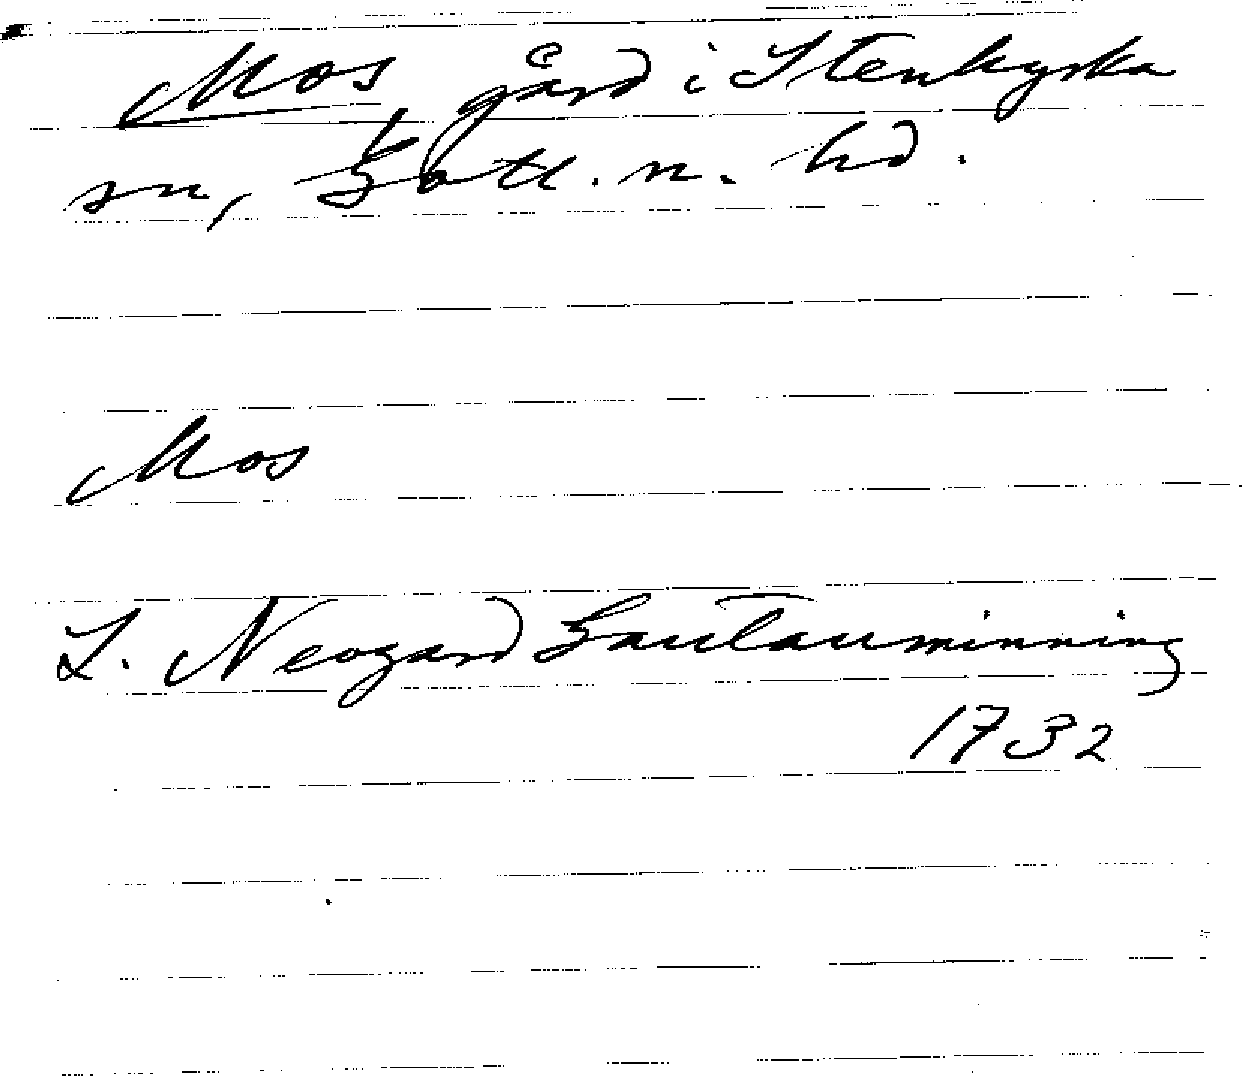 Mos gård i Stenkyrka
sn, Gotl. n. hd.
Mos
L. Neogard Gautauminning
1732